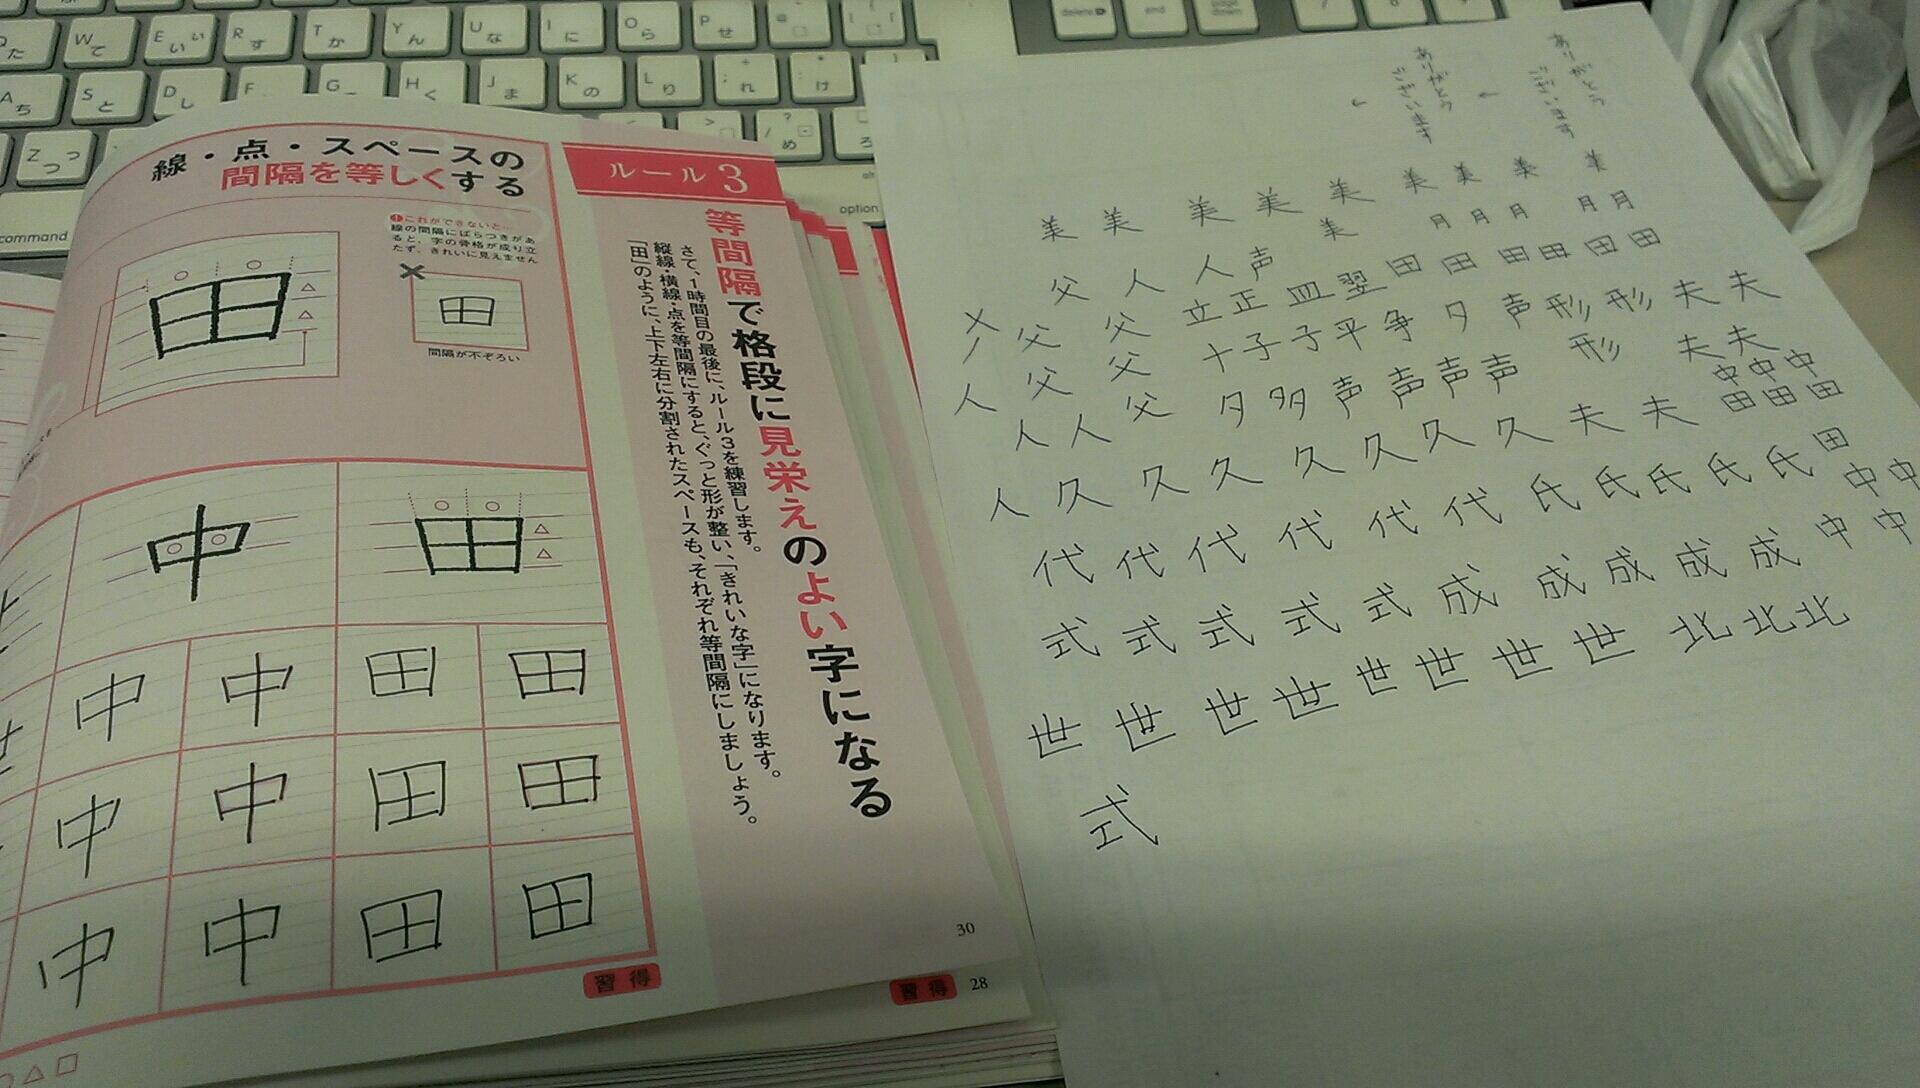 ルール3
等間隔で格段に見栄えのよい字になる
さて、1時間目の最後に、ルール3を練習します。
縦線・横線・点を等間隔にすると、ぐっと形が整い、「きれいな字」になります。
「田」のように、上下左右に分割されたスペースも、それぞれ等間隔にしましょう。
線・点・スペースの
間隔を等しくする
❶これができないと…
線の間隔にばらつきがあ
ると、字の骨格が成り立
たず、きれいに見えません
田
田
間隔が不ぞろい
中 田
中 中 田 田
中 中 田 田
中 中 田 田
習得
30
習得
28
ありがとう
ございます
←
ありがとう
ございます
←
美 美 美 美 美 美 美 美 美
美 月 月 月 月 月
父 人 人 声
立 正 皿 翌 田 田 田 田 田 田
父 父 十 子 子 平 争 夕 声 形 形 夫 夫
人 父 父 形 夫 夫
人 人 父 夕 多 声 声 声 声 中 中 中
田 田 田
人 久 久 久 久 久 久 久 夫 夫
代 代 代 代 代 代 氏 氏 氏 氏 氏 田
中 中
式 式 式 式 式 成 成 成 成 成 中 中
世 世 世 世 世 世 世 世 北 北 北
式
W て
E い ぃ
R す
T か
Y ん
U な
I に
O ら
P せ
A ち
S と
D し
F
G
H く
J ま
K の
L り
Z つ っ
command
option
delete
end
page down